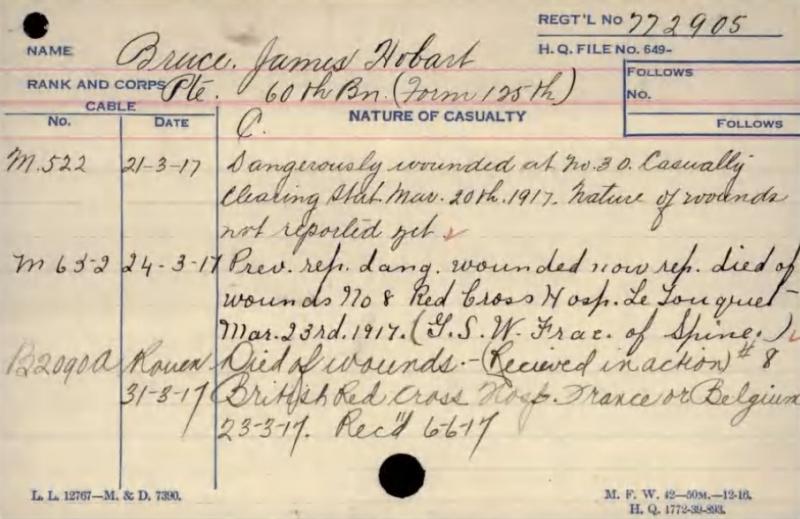 REGT'L No 772905
NAME Bruce. James Hobart
H. Q. FILE No. 649-
RANK AND CORPS Pte. 60th Bn. (Form 125th)
FOLLOWS
No.
FOLLOWS
CABLE
No. DATE
C. NATURE OF CASUALTY
M.522 21-3-17 Dangerously wounded at No. 30. Casually
Clearing Stat. Mar. 20th. 1917. Nature of wounds
not reported yet
M 652 24-3-17 Prev. rep. dang. wounded now rep. died of
wounds No 8 Red Cross Hosp. Le Touquet-
Mar. 23rd. 1917. (G. S. W. Frac. of Spine.)
B2090A Rouen Died of wounds.- (Recieved in action) # 8
31-3-17 British Red Cross Hosp. France or Belgium
23-3-17. Rec'd 6-6-17
L. L. 12767—M. & D. 7390.
M. F. W. 42—50M.—12-16.
H. Q. 1772-39-893.